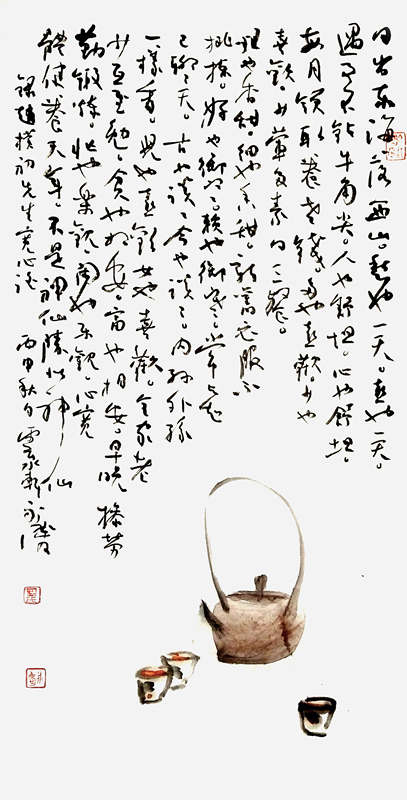 日出东海落西山。愁也一天。喜也一天。
遇事不钻牛角尖。人也舒坦。心也舒坦。
每月领取养老钱。多也喜欢。少也
喜欢。少荤多素日三餐。
粗也香甜。细也香甜。新旧衣服不
挑拣。好也御寒。赖也御寒。常与知
己聊天。古也谈谈。今也谈谈。内孙外孙
一样看。儿也喜欢。女也喜欢。全家老
少互慰勉。贫也相安。富也相安。早晚操劳
勤锻炼。忙也乐观。闲也乐观。心宽
體健養天年。不是神仙胜似神仙
録趙樸初先生宽心谣 丙申秋日